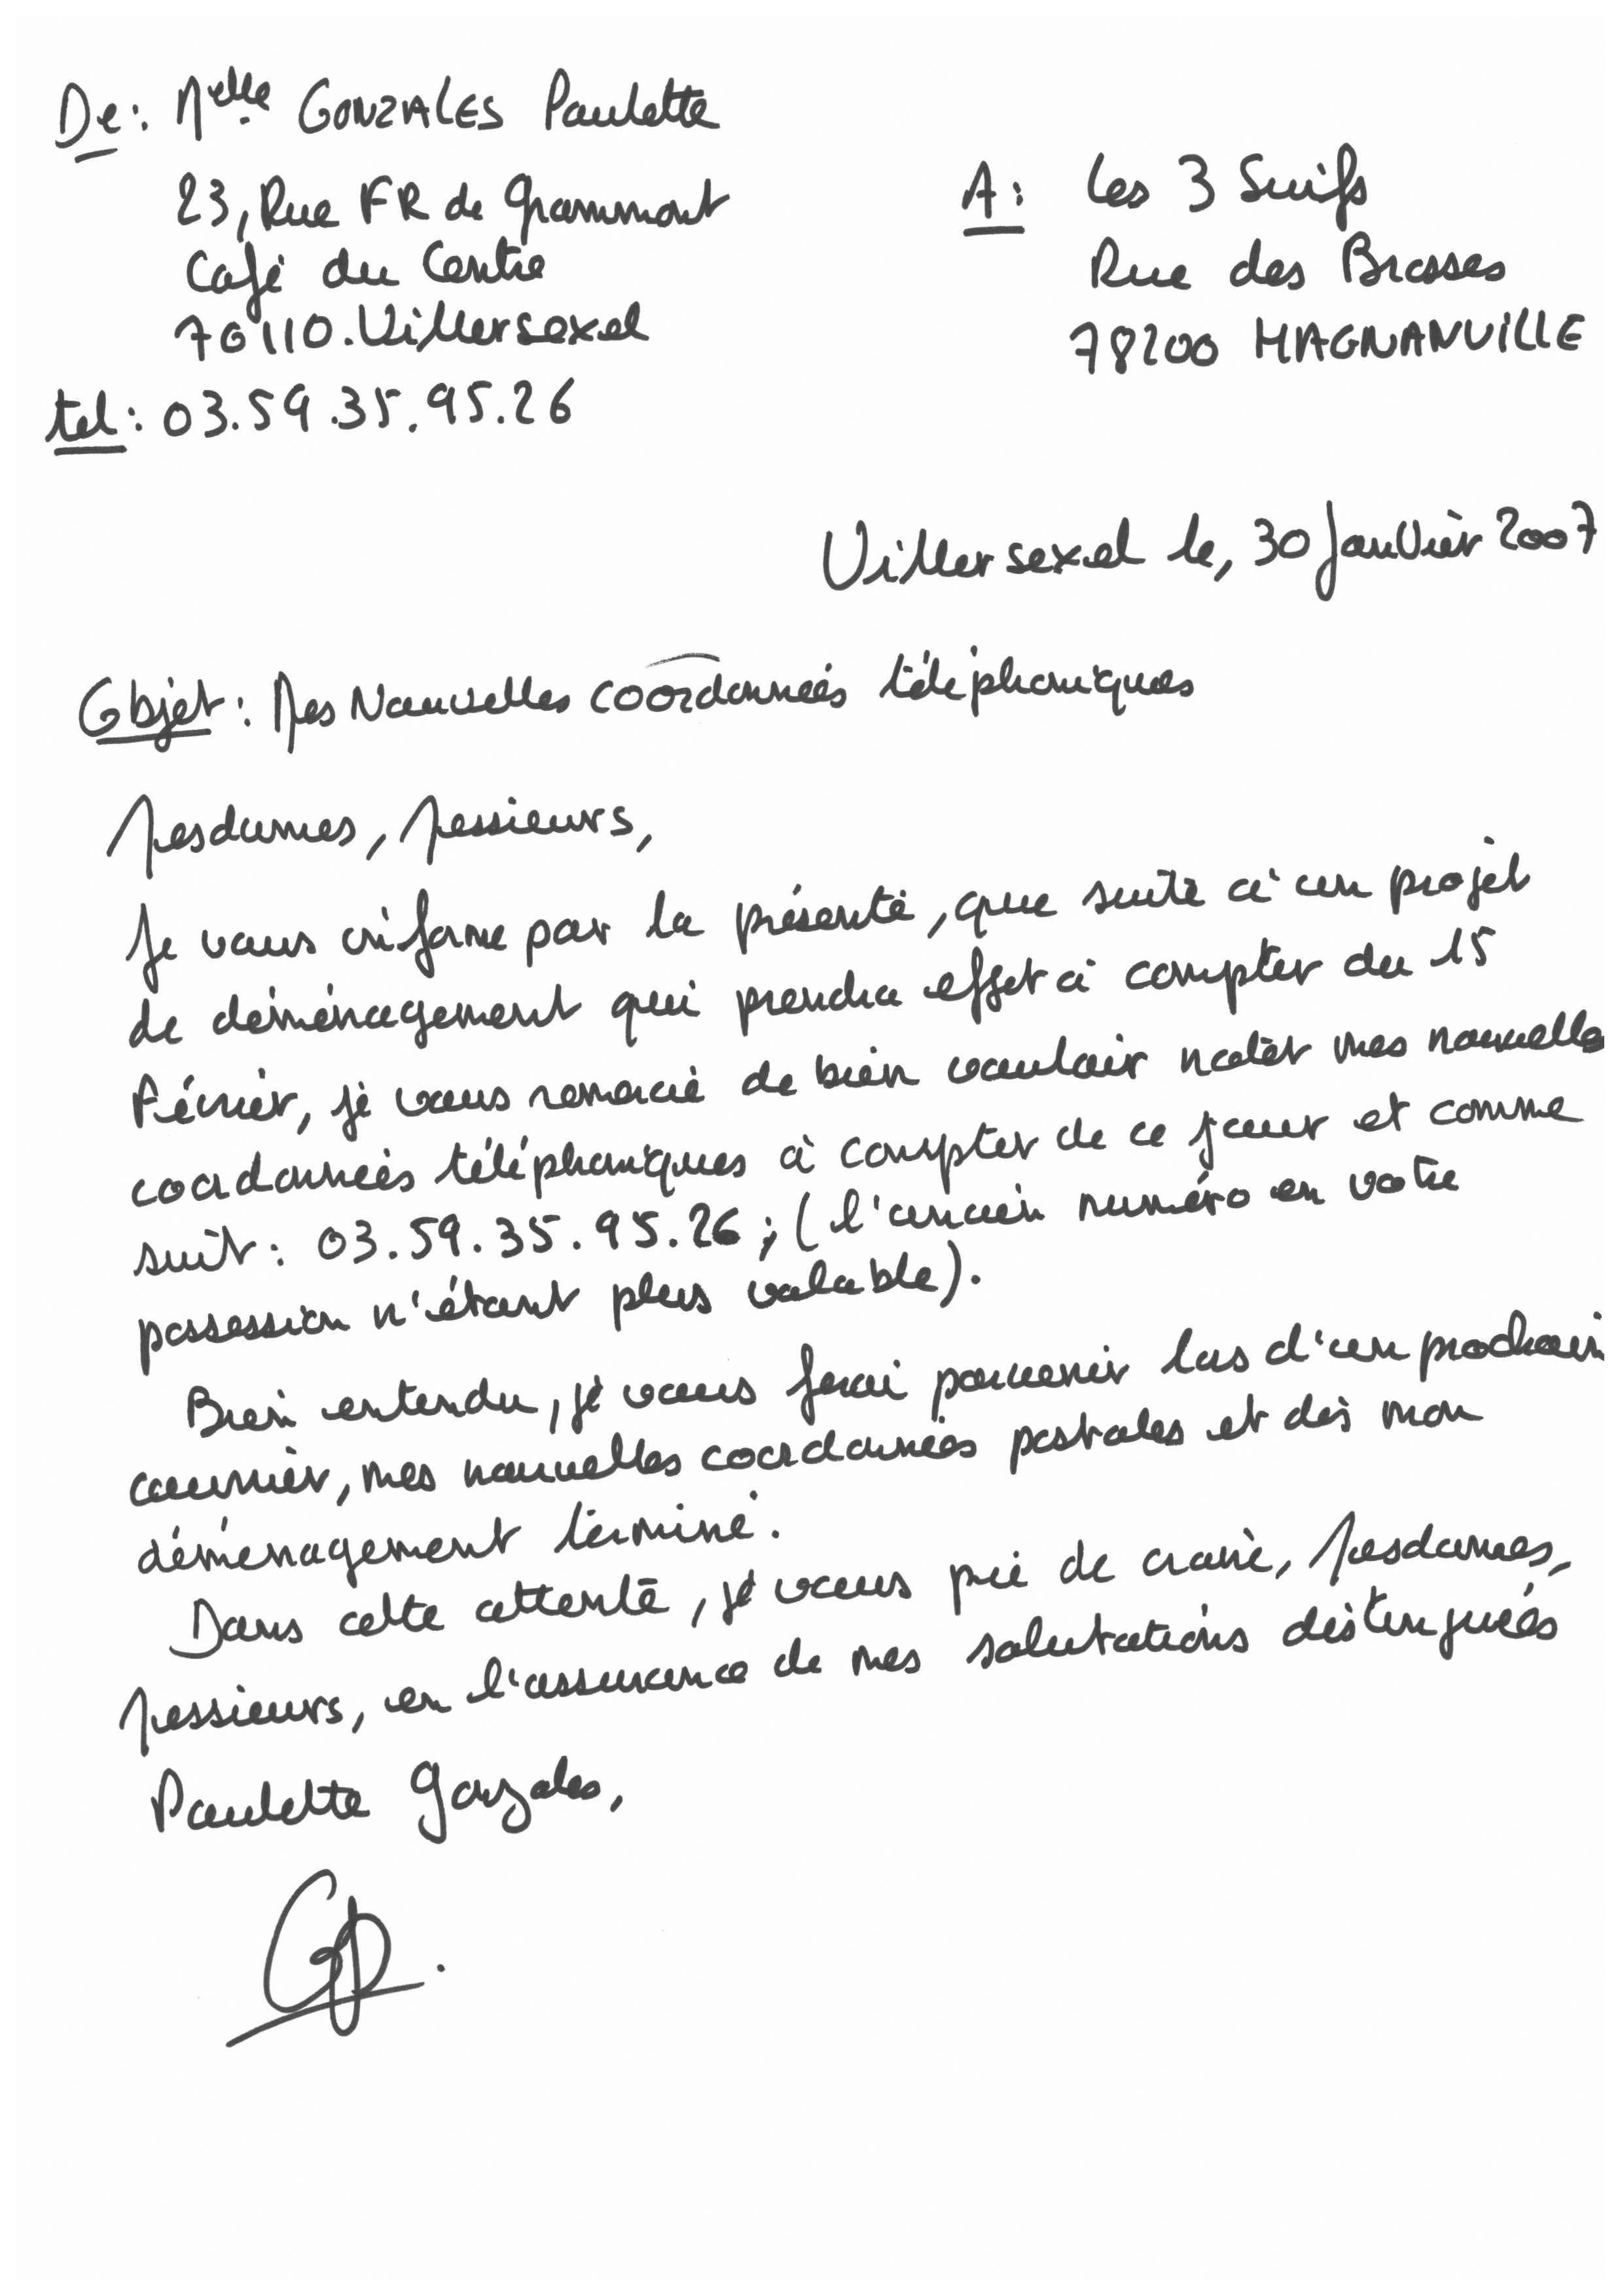 De: Melle GONZALES Paulette
23, Rue FR de Grammont
Café du Centre
70110. Villersexel
tel: 03.59.35.95.26
A: Les 3 Suifs
Rue des Brosses
78200 MAGNANVILLE
Villersexel le, 30 Janvier 2007
Objet: Mes Nouvelles coordonnées téléphoniques
Mesdames, Messieurs,
Je vous informe par la présente, que suite à un projet
de déménagement qui prendra effet à compter du 15
Février, je vous remercie de bien vouloir noter mes nouvelles
coordonnées téléphoniques à compter de ce jour et comme
suit: 03.59.35.95.26; (l'ancien numéro en votre
possession n'étant plus valable).
Bien entendu, je vous ferai parvenir lors d'un prochain
courrier, mes nouvelles coordonnées postales et dès mon
déménagement terminé.
Dans cette attente, je vous prie de croire, Mesdames,
Messieurs, en l'assurance de mes salutations distinguées
Paulette Gonzales,
GP.